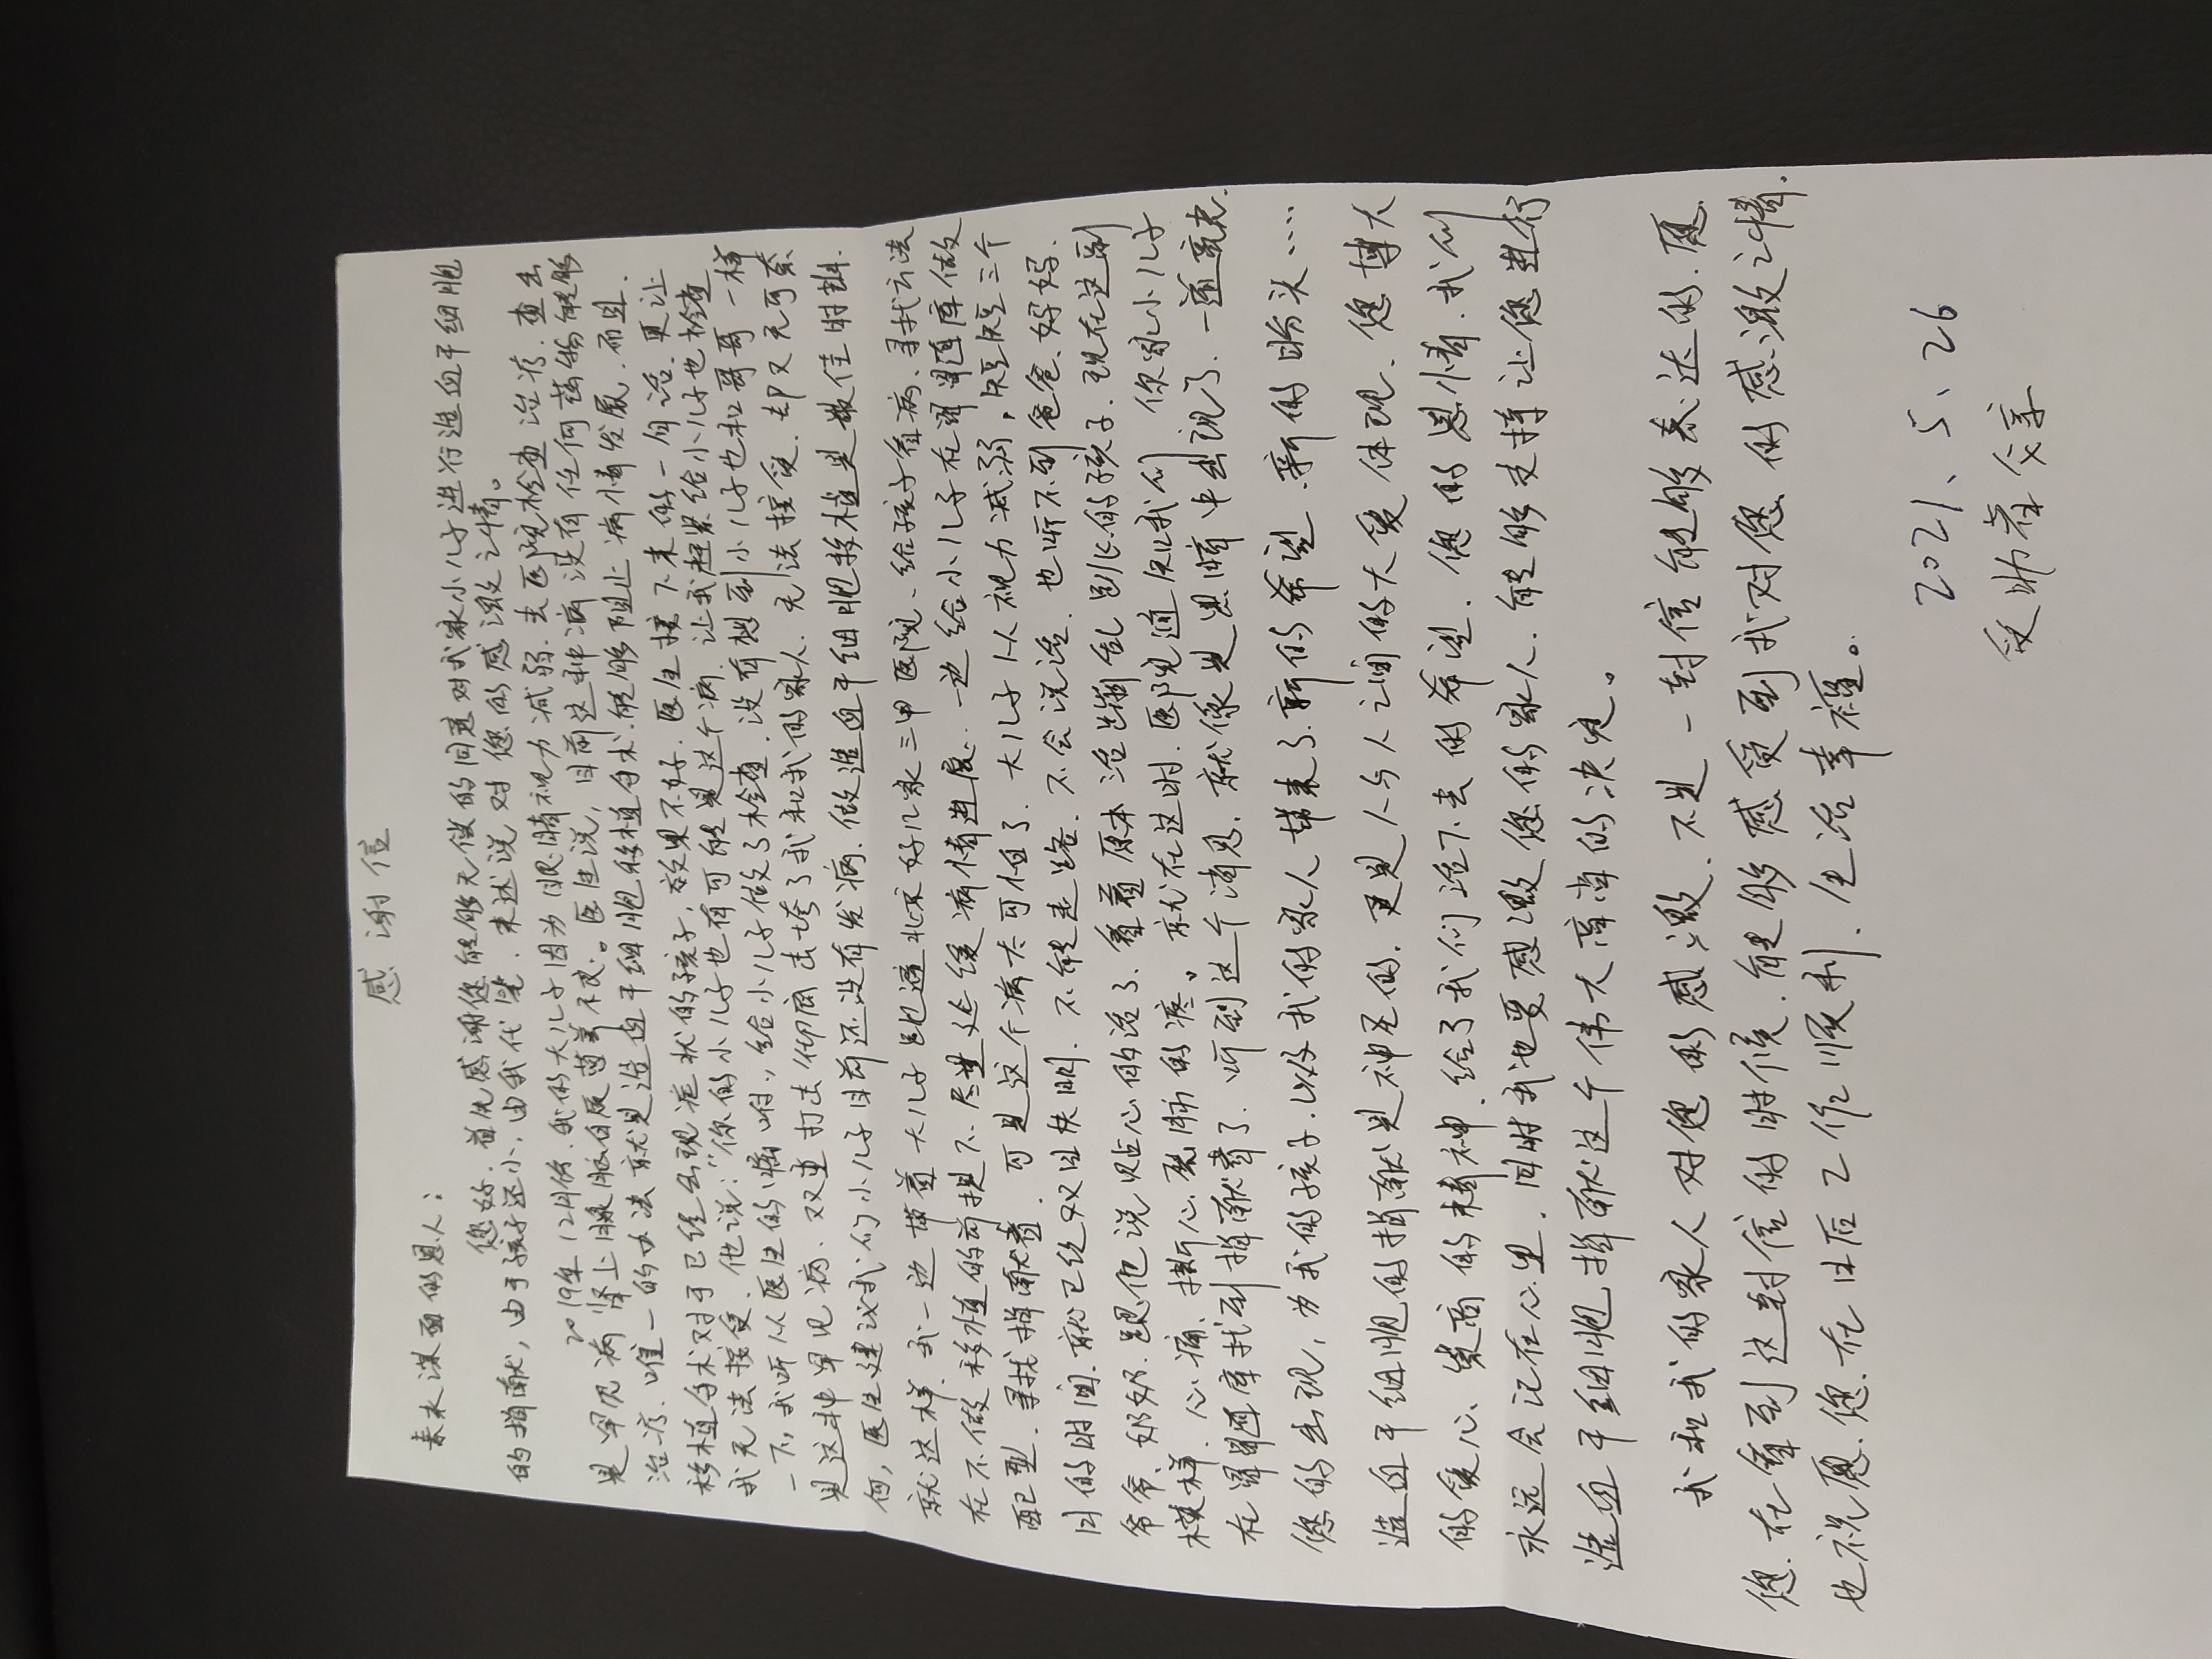 感谢信
素未谋面的恩人：
您好。首先感谢您能够无偿的同意对我家小儿子进行造血干细胞
的捐献，由于孩子还小，由我代笔，来述说对您的感激之情。
2019年12月份，我的大儿子因为眼睛视力减弱，去医院检查治疗，查出
是罕见病肾上腺脑白质营养不良。医生说，目前这种病没有任何药物能够
治疗，唯一的办法就是造血干细胞移植手术，能够阻止病情发展，而且
移植手术对于已经出现症状的孩子，效果不好。医生接下来的一句话，更让
我无法接受，他说：“你的小儿子也有可能是这个病，让我赶紧给小儿子也检查
一下，我听从医生的嘱咐，给小儿子做了检查，没有想到小儿子也和哥哥一样
是这种罕见病，双重打击彻底击垮了我和我的家人，无法接受，却又无可奈
何，医生建议我们小儿子目前还没有发病，做造血干细胞移植是最佳时期。
就这样，我一边带着大儿子跑遍北京好几家三甲医院，给孩子看病、寻找方法
在不做移植的前提下，尽量延缓病情进展，一边给小儿子在骨髓库做
配型，寻找捐献者，可是这个病太可怕了，大儿子从视力减弱，短短三个
月的时间，就已经双目失明，不能走路，不会说话，也听不到爸爸、妈妈、
爷爷、奶奶，跟他说贴心的话了，看着原本活蹦乱跳的孩子，现在这副
模样，心痛、撕心裂肺的疼。就在这时，医院通知我们，你家小儿子
在骨髓库找到捐献者了，听到这个消息，就像是黑暗中出现了一道亮光，
您的出现，为我的孩子，以及我的家人带来了新的希望，新的盼头……
造血干细胞的捐献是神圣的，更是人与人之间的大爱体现，您博大
的爱心、崇高的精神，给了我们活下去的希望，您的恩情，我们
永远会记在心里，同时我也要感激您的家人，能够支持让您进行
造血干细胞捐献这个伟大高尚的决定。
我和我的家人对您的感激，不是一封信能够表达的，愿
您在看到这封信的时候，能够感受到我对您的感激之情，
也祝愿您在日后工作顺利，生活幸福。
2021、5、26
受助者父亲